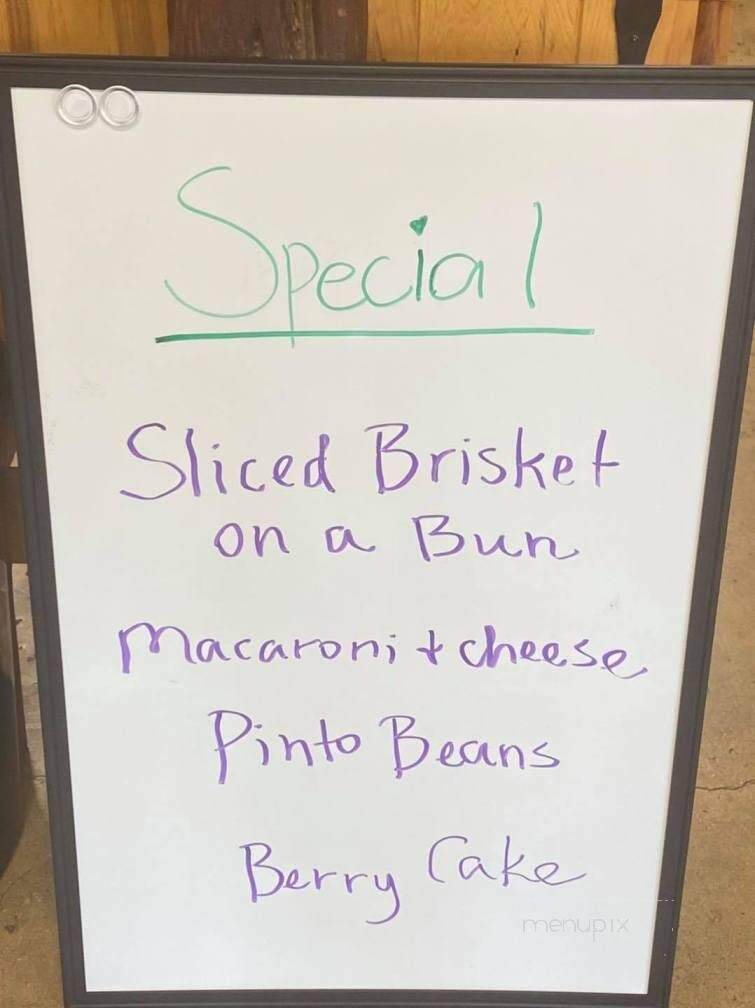 Special
Sliced Brisket
on a Bun
Macaroni + cheese
Pinto Beans
Berry Cake
menupix